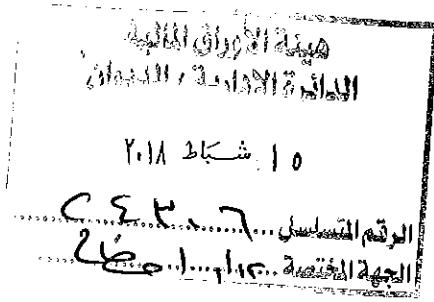 هيئة الأوراق المالية
الدائرة الإدارية / الديوان
١٥ شباط ٢٠١٨
الرقم المتسلسل ... ٤٣٠٦
الجهة المختصة